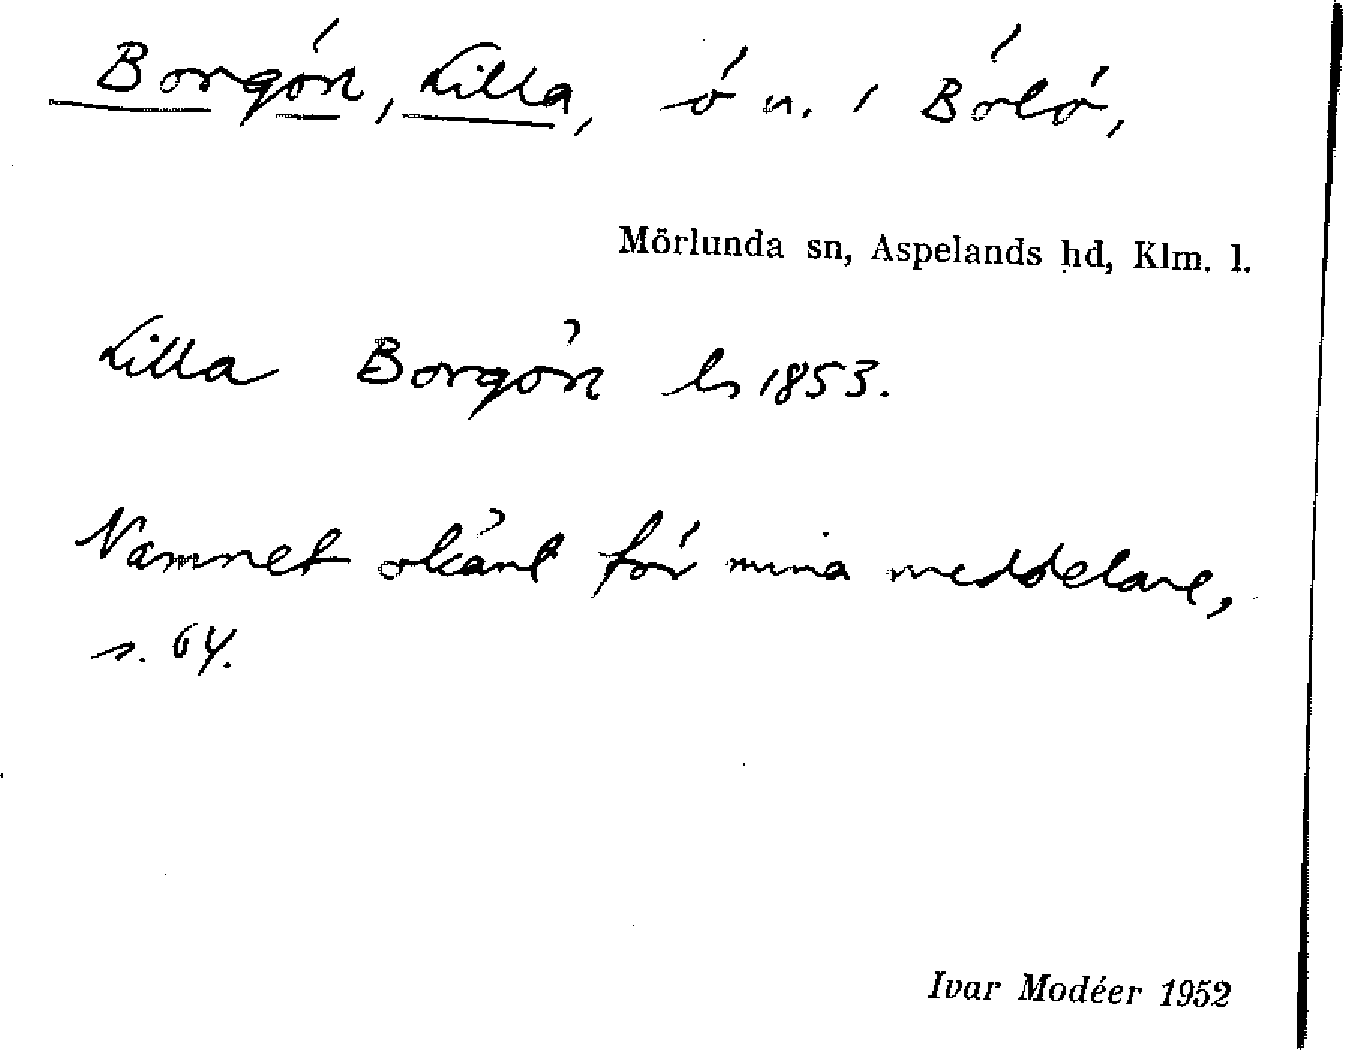 Borgön, Lilla, ö n. i Bölö,
Mörlunda sn, Aspelands hd, Klm. l.
Lilla Borgön ls 1853.
Namnet okänt för mina meddelare,
s. 64.
Ivar Modéer 1952